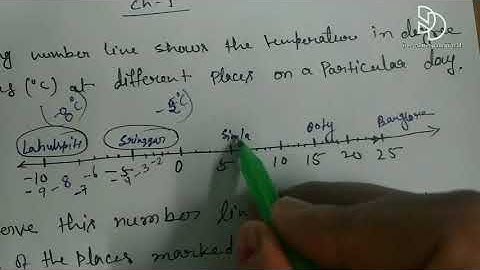 Ch-1
ng number line shows the temperature in degree
us (°C) at different places on a particular day.
-8°C -2°C
Lahulspiti Srinagar Simla Ooty Banglore
-10 -5 0 5 10 15 20 25
-9 -8 -7 -6 -4 -3 -2
erve this number lin
of the places marked